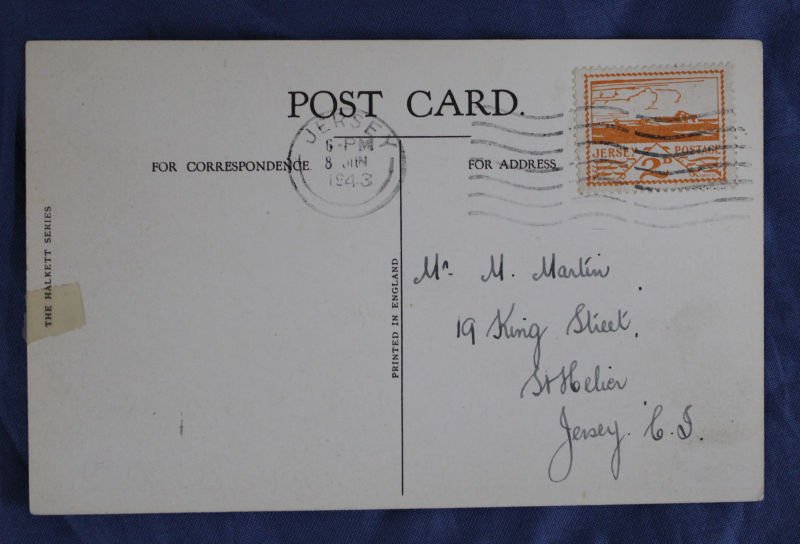 POST CARD.
JERSEY
6-PM
8 JUN
1943
FOR CORRESPONDENCE.
FOR ADDRESS.
JERSEY 2D POSTAGE
THE HALKETT SERIES
PRINTED IN ENGLAND
Mr. M. Martin
19 King Street.
St Helier
Jersey. C.I.